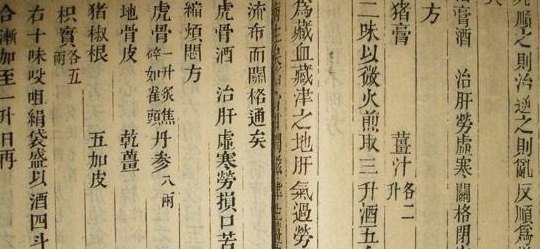 死順之則治逆之則亂反順為
矣
膏酒　治肝勞虛寒關格閉
方
猪膏　薑汁各二升
二味以微火煎取三升酒五
為藏血藏津之地肝氣過勞
流布而關格通矣
虎骨酒　治肝虛寒勞損口苦
縮煩悶方
虎骨一升炙焦碎如雀頭　丹參八兩
地骨皮　乾薑
猪椒根　五加皮
枳實各五兩
右十味㕮咀絹袋盛以酒四斗
合漸加至二升日再